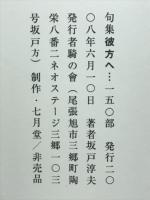 句集彼方へ…一五〇部　発行二〇
〇八年六月一〇日　著者坂戸淳夫
発行者騎の會（尾張旭市三郷町陶
栄八番二ネオステージ三郷一〇三
号坂戸方）制作・七月堂／非売品